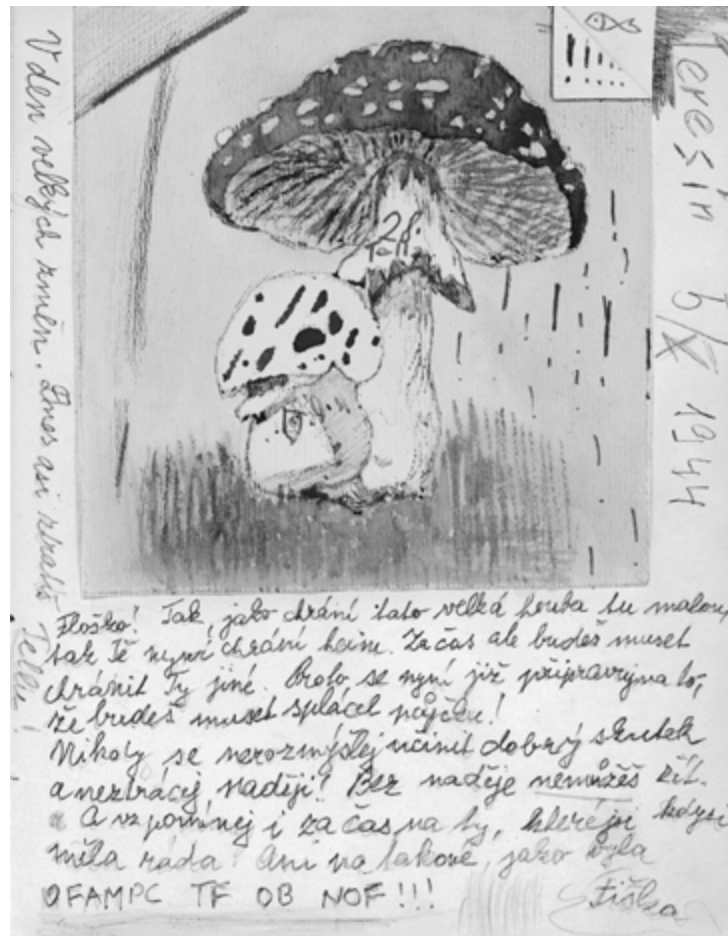 Teresin 6/X 1944
V den velkých změn. Dnes asi Tellu!
Floško! Tak, jako chrání tato velká houba tu malou,
tak Tě nyní chrání heim. Za čas ale budeš muset
chránit Ty jiné. Proto se nyní již připravuj na to,
že budeš muset splácet půjčku!
Nikdy se nerozmýšlej učinit dobrý skutek
a neztrácej naději! Bez naděje nemůžeš žít.
A vzpomínej i za čas na ty, které jsi kdysi
měla ráda. Ani na takové, jako byla
OFAMPC TF OB NOF!!! Fiška